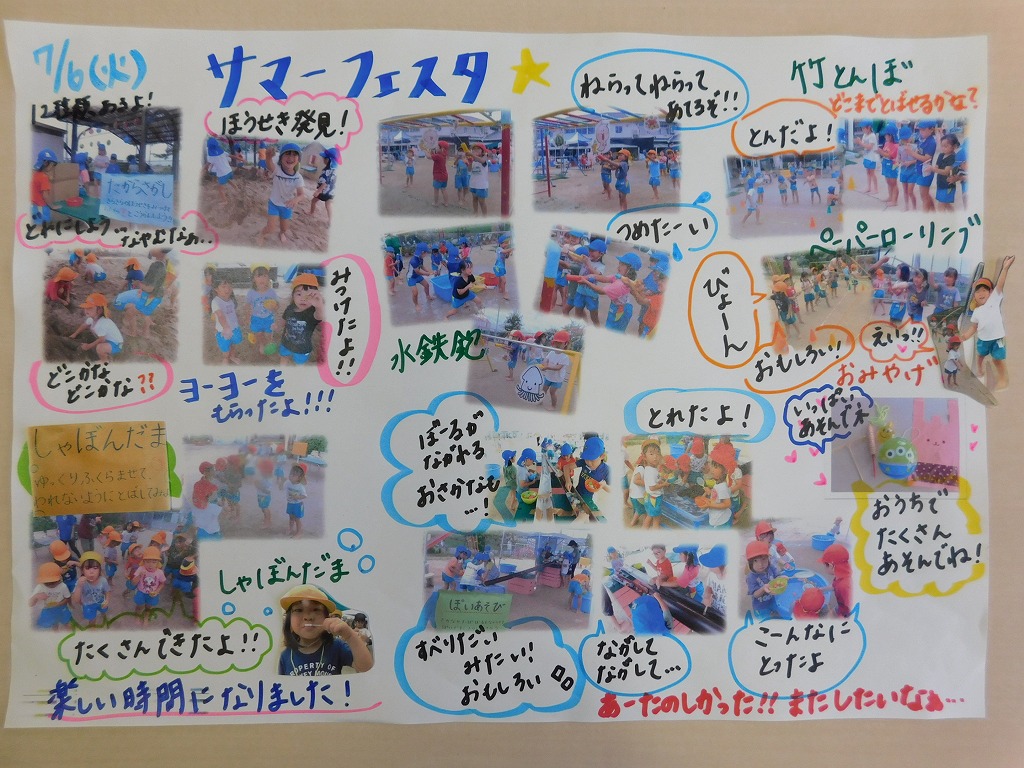 7/6(火)
サマーフェスタ
12種類あるよ!
ほうせき発見!
ねらってねらって
あてるぞ!!
竹とんぼ
どこまでとばせるかな?
とんだよ!
たからさがし
どれにしよう…なやむなぁ..
つめたーい
ペーパーローリング
びょーん
おもしろい!!
えいっ!!
みつけたよ!!
どこかな
どこかな??
ヨーヨーを
もらったよ!!!
水鉄砲
おみやげ
いっぱい
あそんでネ
とれたよ!
ぼーるが
ながれる
おさかなも
…!
しゃぼんだま
ゆっくりふくらませて、
やれないようにとばしてみよう
おうちで
たくさん
あそんでね!
しゃぼんだま
たくさんできたよ!!
ぽいあそび
すべりだい
みたい!
おもしろい
ながして
ながして…
こーんなに
とったよ
楽しい時間になりました!
あーたのしかった!!またしたいなぁ…